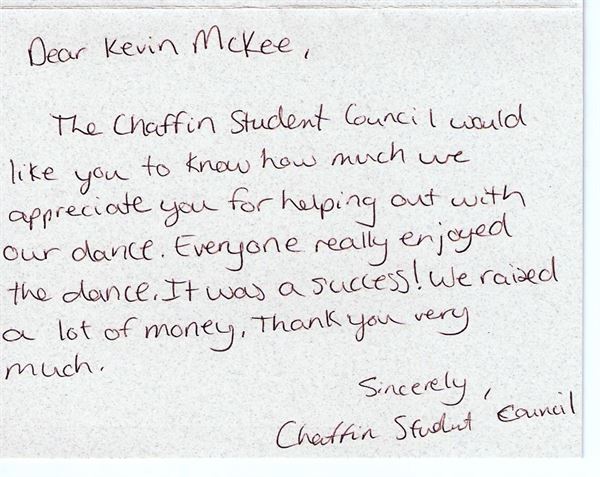 Dear Kevin McKee,
The Chaffin Student Council would
like you to know how much we
appreciate you for helping out with
our dance. Everyone really enjoyed
the dance. It was a success! We raised
a lot of money. Thank you very
much.
Sincerely,
Chaffin Student Council